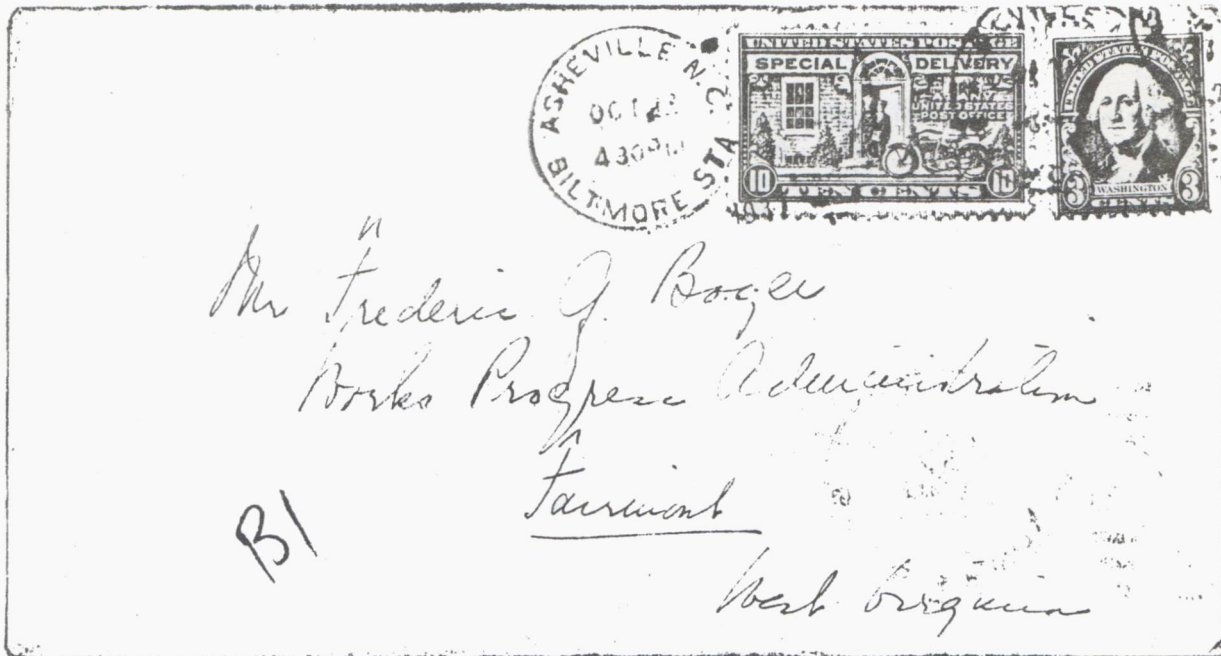 ASHEVILLE N.C.
OCT 23
4 30 PM
BILTMORE STA
193
UNITED STATES POSTAGE
SPECIAL DELIVERY
AT ANY
UNITED STATES
POST OFFICE
10 TEN CENTS 10
UNITED STATES POSTAGE
WASHINGTON
3 CENTS 3
Mr Frederic G. Boger
Works Progress Administration
Fairmont
West Virginia
B1